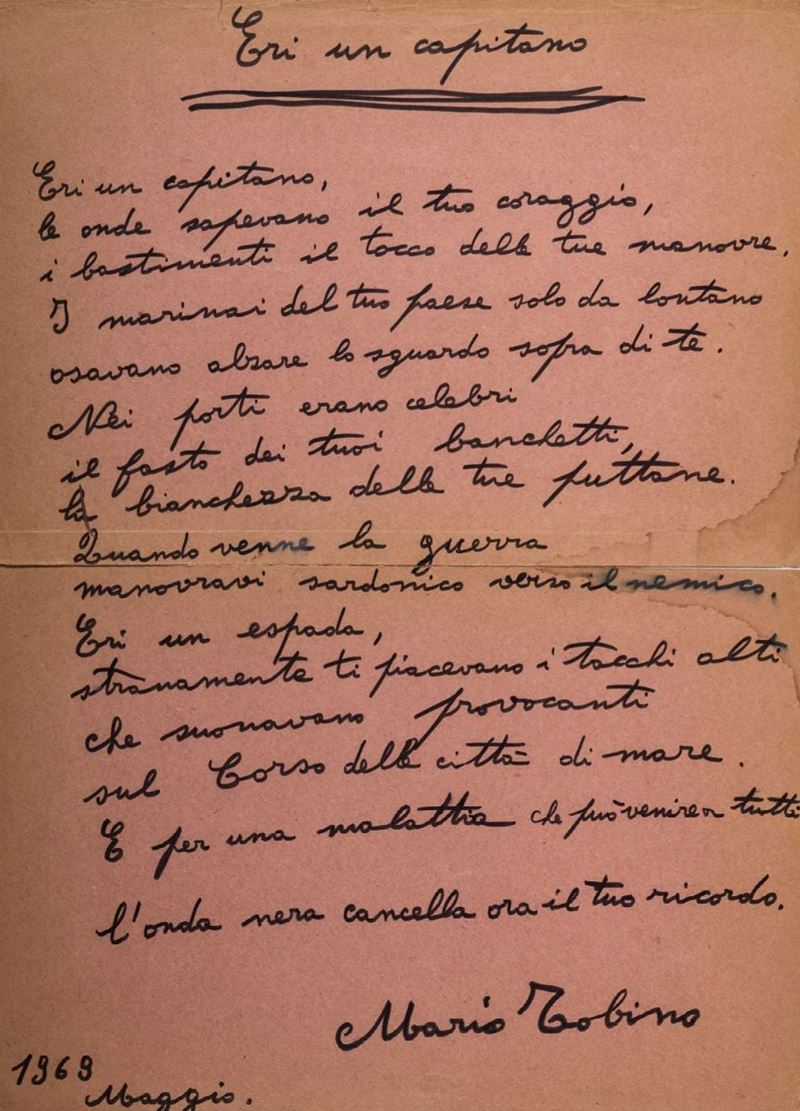 Eri un capitano
Eri un capitano,
le onde sapevano il tuo coraggio,
i bastimenti il tocco delle tue manovre.
I marinai del tuo paese solo da lontano
osavano alzare lo sguardo sopra di te.
Nei porti erano celebri
il fasto dei tuoi banchetti,
la bianchezza delle tue puttane.
Quando venne la guerra
manovravi sardonico verso il nemico.
Eri un espada,
stranamente ti piacevano i tacchi alti
che suonavano provocanti
sul Corso delle città di mare.
E per una malattia che può venire a tutti
l'onda nera cancella ora il tuo ricordo.
Mario Tobino
1969
Maggio.